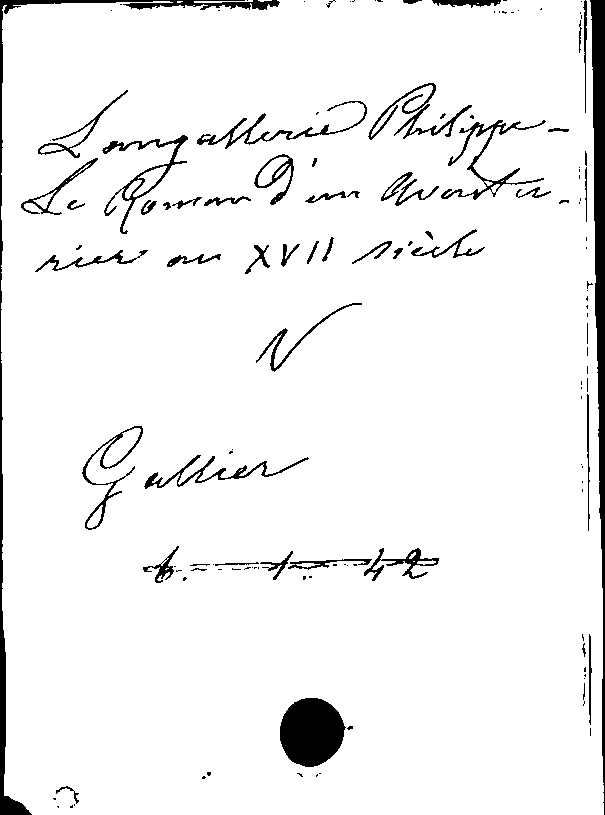 Langallerie Philippe-
Le Roman d'un Aventu-
rier au XVII siècle
V
Gallier
6. 1. 42